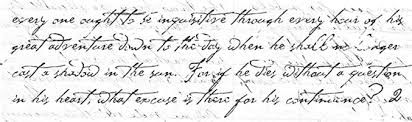 every one ought to be inquisitive through every hour of his
great adventure down to the day when he shall no longer
cast a shadow in the sun. For if he dies without a question
in his heart, what excuse is there for his continuance? 2